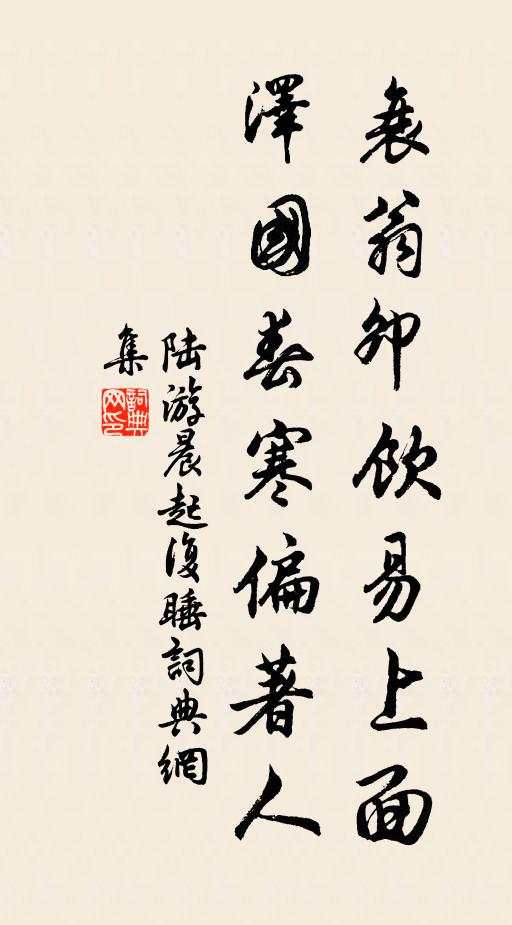 衰翁卯飲易上面
澤國春寒偏著人
陸游晨起復睡詞典網
集
詞典
网印